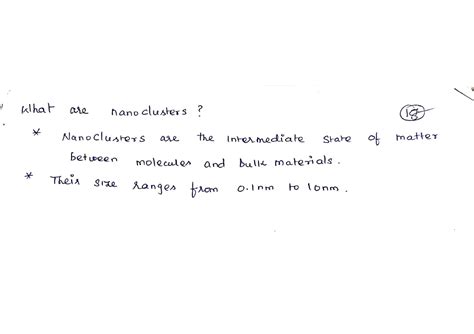 What are nanoclusters ?
* Nanoclusters are the Intermediate State of matter
between molecules and bulk materials.
* Their size ranges from 0.1nm to 10nm.